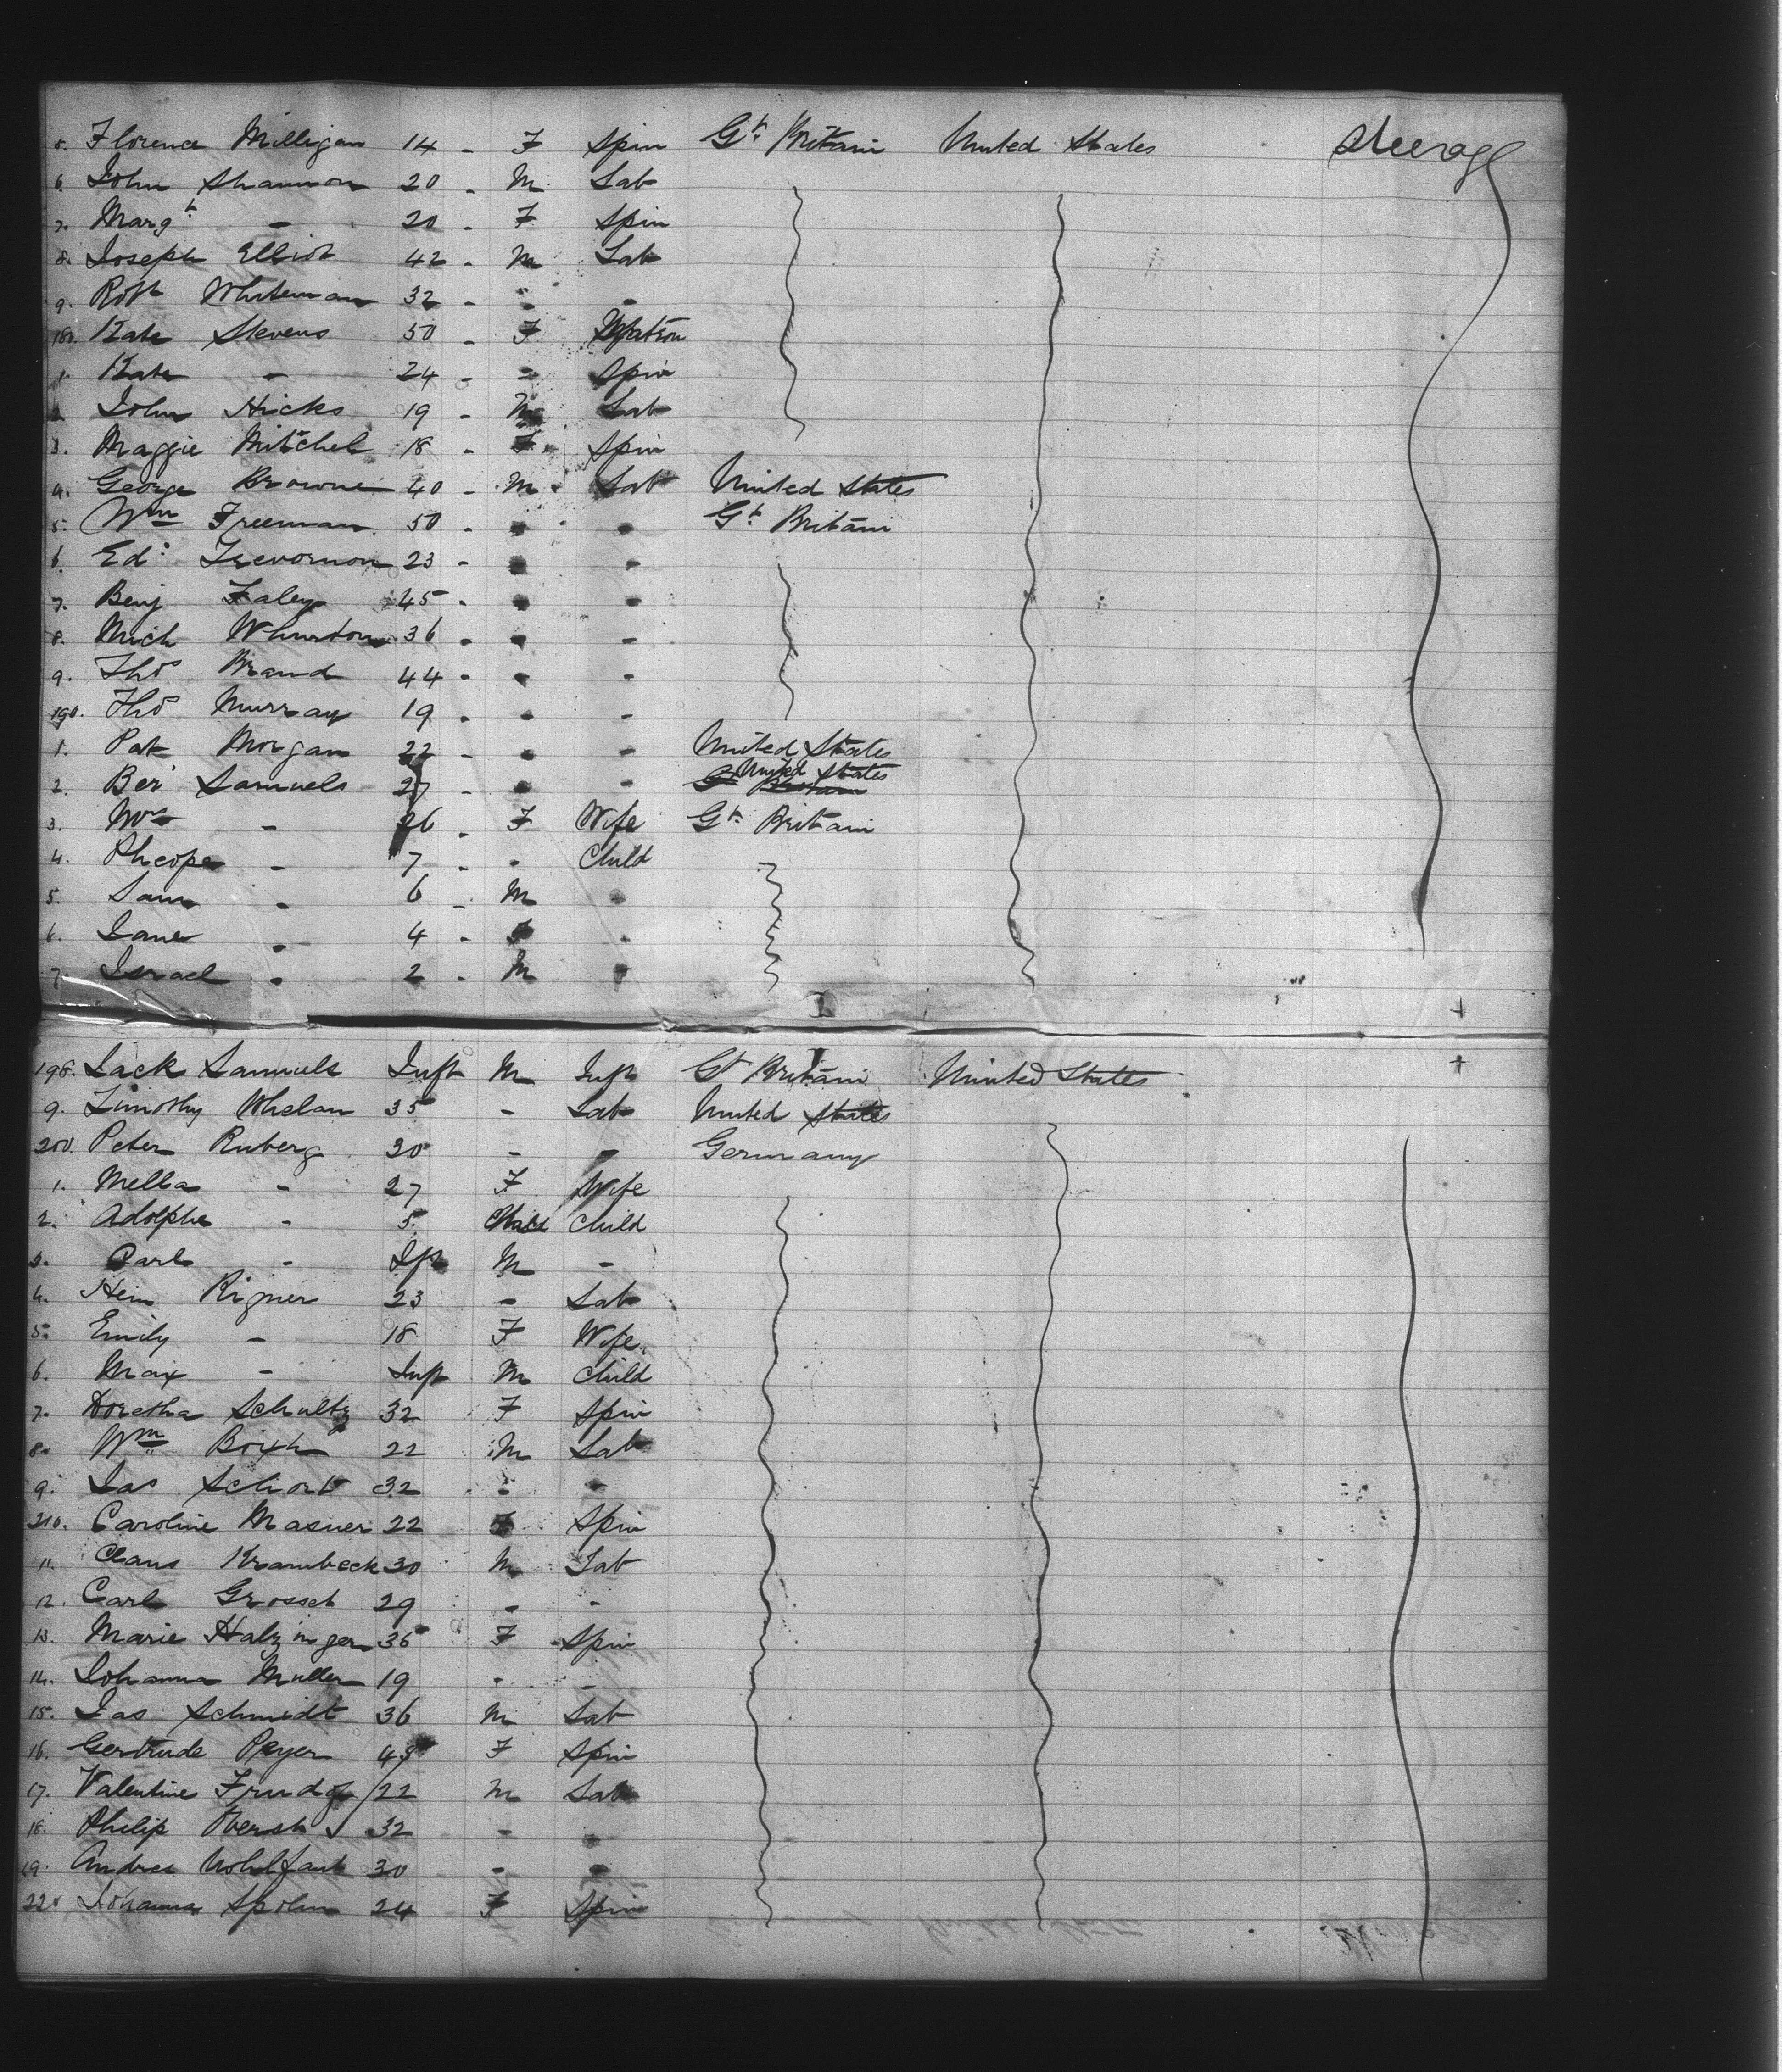 5. Florence Milligan 14 - F Spin Gt. Britain United States Steerage
6. John Shannon 20 - M Lab
7. Margt. - 20 - F Spin
8. Joseph Elliot 42 - M Lab
9. Robt Whiteman 32 - " -
180. Kate Stevens 50 - F Matron
1. Kate - 24 - - Spin
2. John Hicks 19 - M Lab
3. Maggie Mitchel 18 - F. Spin
4. George Browne 40 - M Lab United States
5. Wm Freeman 50 - " " Gt. Britain
6. Ed. Trevornon 23 - " -
7. Benj Faley 45 - " "
8. Mich Whurton 36 - " -
9. Thos Brand 44 - " -
190. Thos Murray 19 - " -
1. Pat Morgan 22 - " - United States
2. Ber Samuels 27 - " - United States
3. Mrs - 26 - F Wife Gt. Britain
4. - 7 - " Child
5. Sam - 6 - M "
6. Jane - 4 - F "
7. Israel " 2 - M "
198. Jack Samuels Inft M Inft Gt Britain United States
9. Timothy Whelan 35 - Lab United States
200. Peter Ruberg 30 - - Germany
1. Mella - 27 F Wife
2. Adolphe - 5 Child
3. Carl - Ift M -
4. Hein Rigner 23 - Lab
5. Emily - 18 F Wife
6. Max - Inft M Child
7. Doretha Schultz 32 F Spin
8. Wm 22 M Lab
9. Jas Schort 32 " "
210. Caroline Masner 22 F Spin
11. Claus Krambeck 30 M Lab
12. Carl Grosset 29 - -
13. Marie Halzinger 36 F Spin
14. Johanna Muller 19 - -
15. Jas Schmidt 36 M Lab
16. Gertrude Peyer 45 F Spin
17. Valentine 22 M Lab
18. Philip 32 - "
19. Andres Wohlfart 30 - "
220 Johanna Spohn 24 F Spin